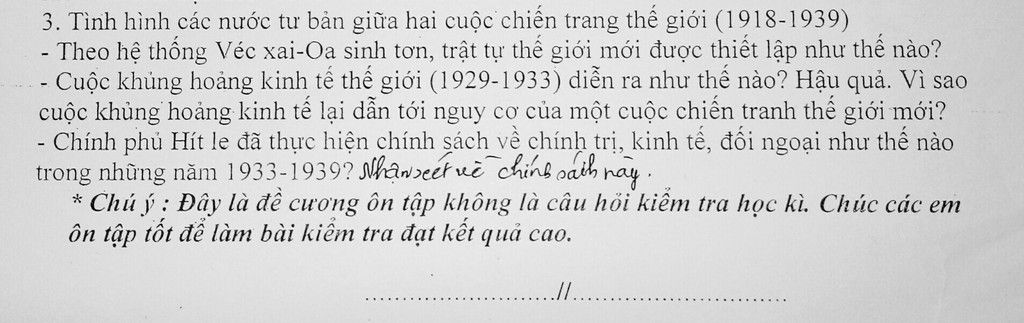 3. Tình hình các nước tư bản giữa hai cuộc chiến trang thế giới (1918-1939)
- Theo hệ thống Véc xai-Oa sinh tơn, trật tự thế giới mới được thiết lập như thế nào?
- Cuộc khủng hoảng kinh tế thế giới (1929-1933) diễn ra như thế nào? Hậu quả. Vì sao
cuộc khủng hoảng kinh tế lại dẫn tới nguy cơ của một cuộc chiến tranh thế giới mới?
- Chính phủ Hít le đã thực hiện chính sách về chính trị, kinh tế, đối ngoại như thế nào
trong những năm 1933-1939? Nhận xét về chính sách này.
* Chú ý : Đây là đề cương ôn tập không là câu hỏi kiểm tra học kì. Chúc các em
ôn tập tốt để làm bài kiểm tra đạt kết quả cao.
..........................//..............................